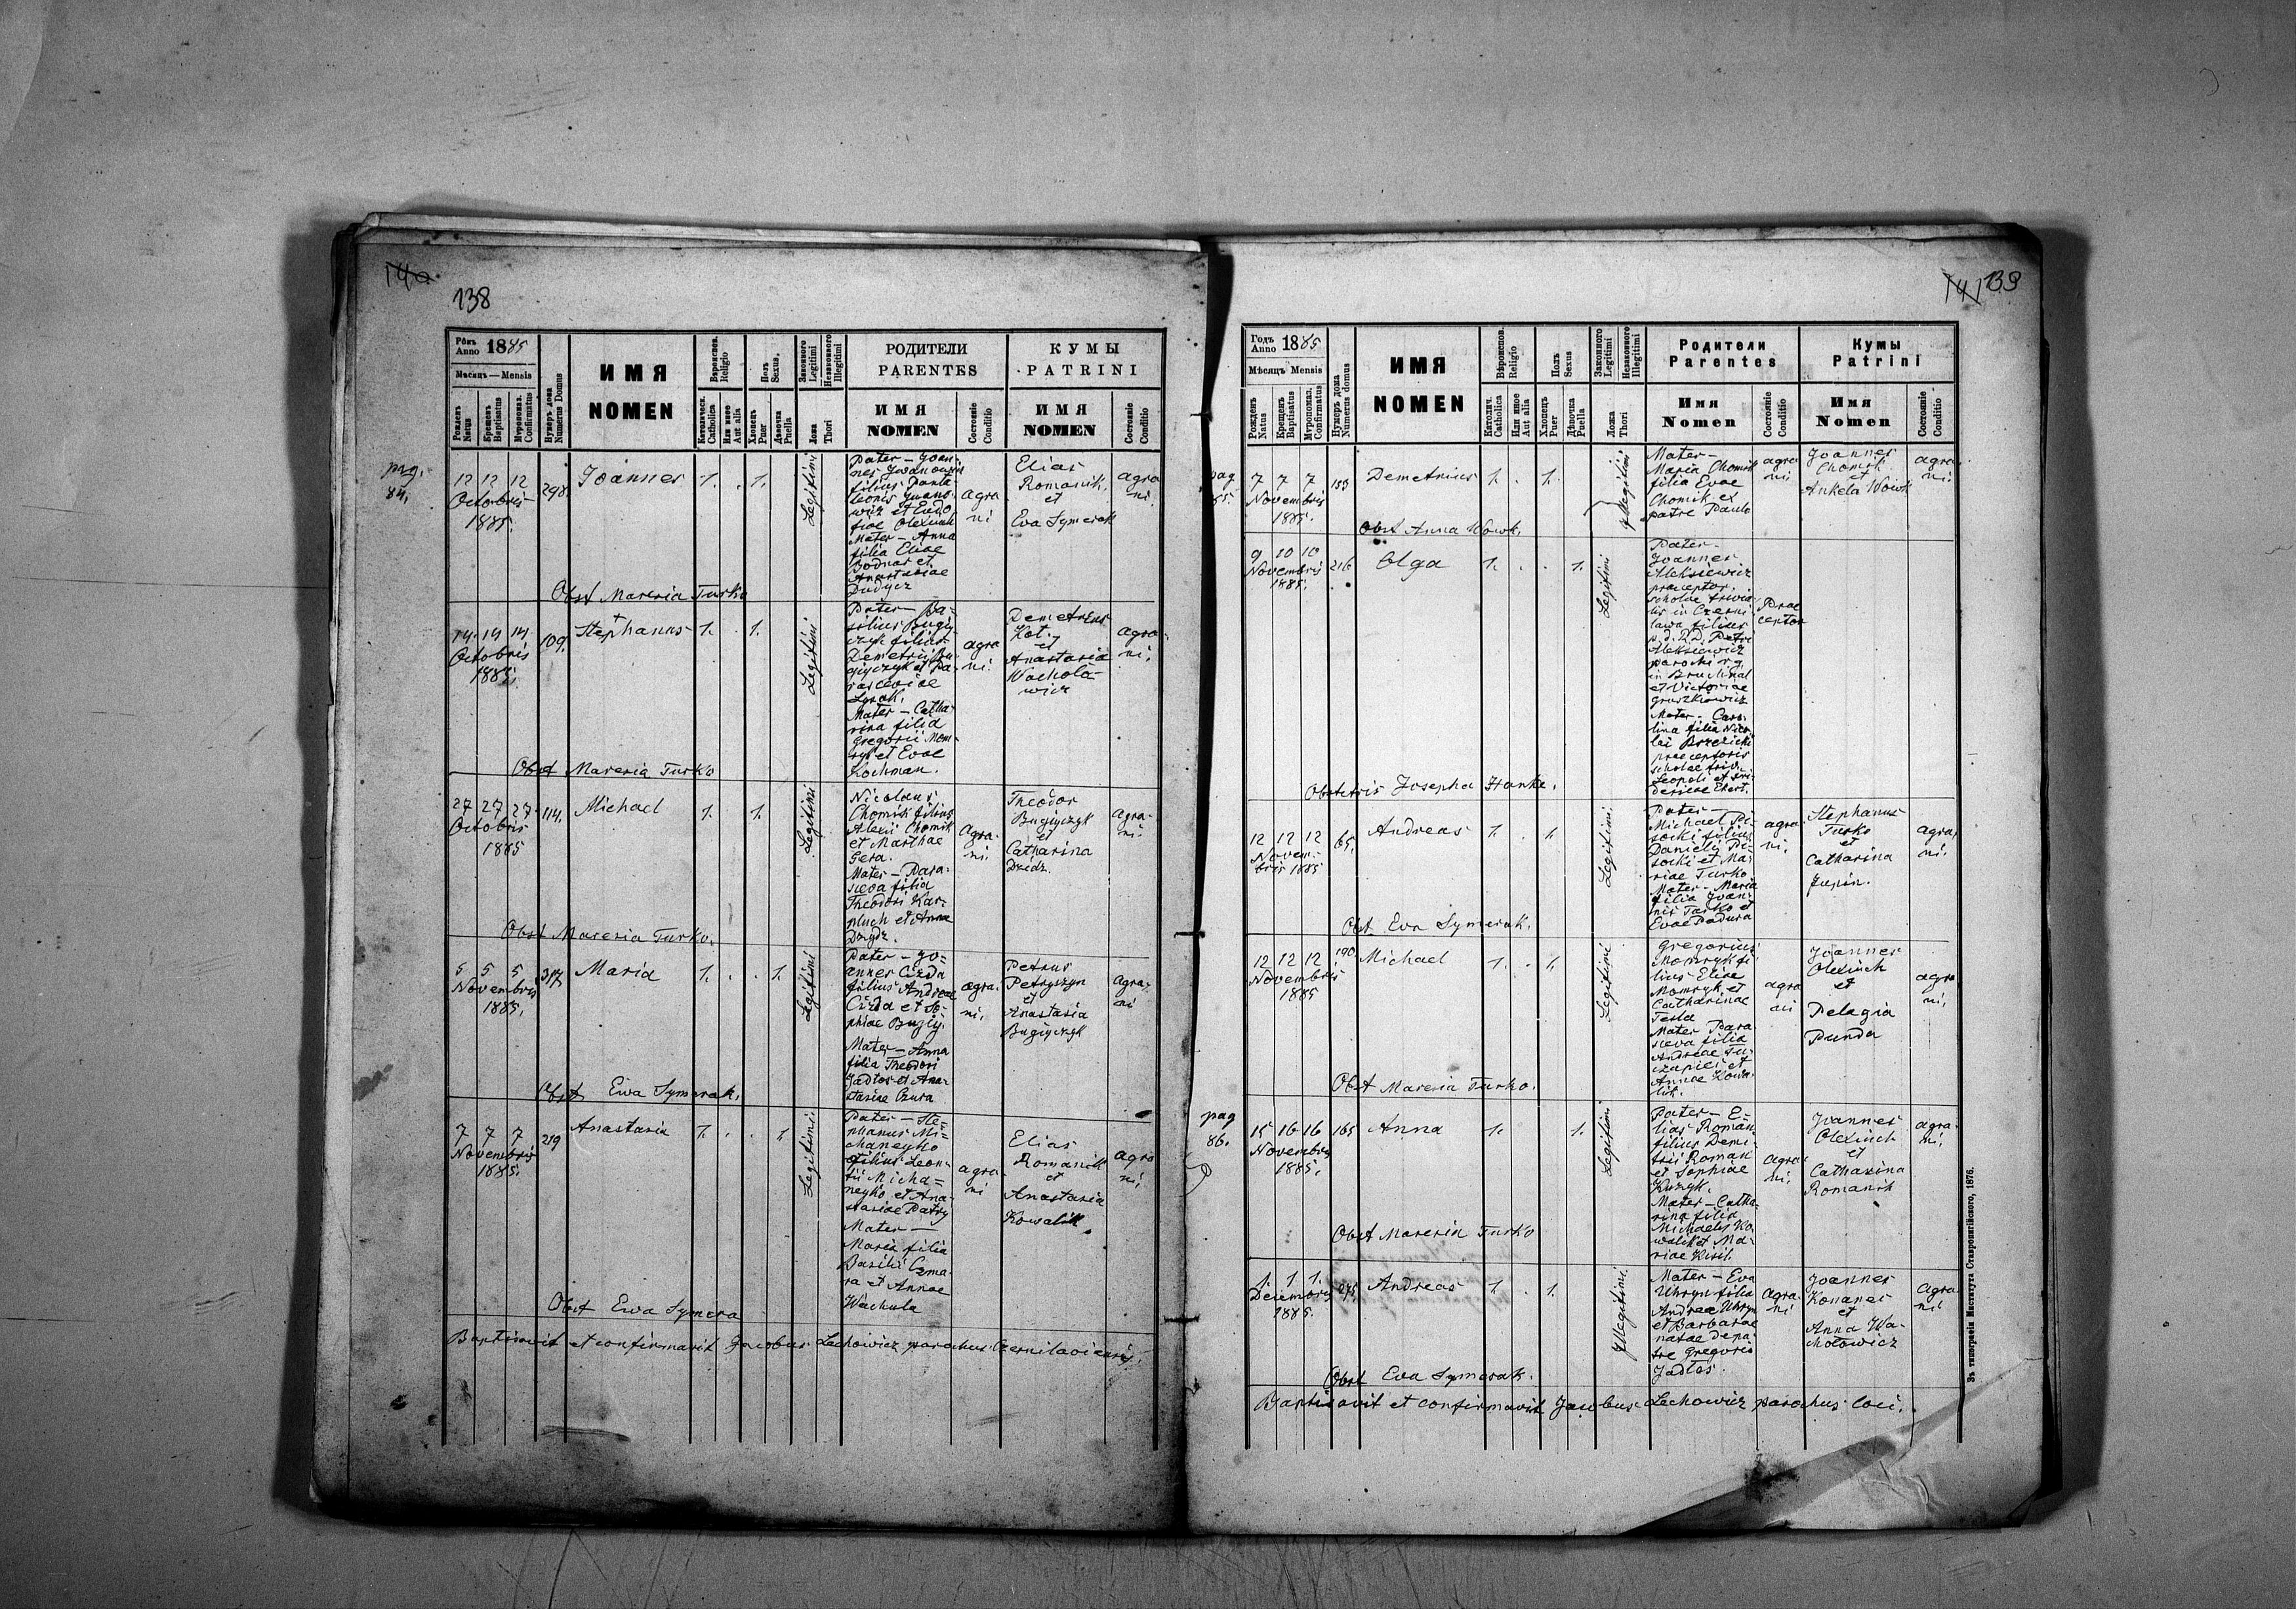 140
138
Рôкъ
Anno 1885
Мѣсяцъ — Mensis
Рожденъ
Natus
Крещенъ
Baptisatus
Мѵропомаз.
Confirmatus
Нумеръ дома
Numerus Domus
ИМЯ
NOMEN
Вѣроиспов.
Religio
Католическ.
Catholica
Или иное
Aut alia
Полъ
Sexus
Хлопецъ
Puer
Дѣвочка
Puella
Законного
Legitimi
Незаконного
Illegitimi
Ложа
Thori
РОДИТЕЛИ
PARENTES
ИМЯ
NOMEN
Состояніе
Conditio
КУМЫ
PATRINI
ИМЯ
NOMEN
Состояніе
Conditio
pag.
84.
12 12 12
Octobris
1885.
298.
Joannes
1. . 1.
Legitimi
Pater – Joan-
nes Iwanowicz
filius Panta-
leonis Iwano-
wicz et Eudo-
fiae Olexiuk
Mater – Anna
filia Eliae
Bodnar et
Anastasiae
Dudycz
agra
ni
Elias
Romanik
et
Eva Symerak
agra
ni
Obst Mareria Turko
14. 14 14.
Octobris
1885.
109.
Stephanus
1. . 1.
Legitimi
Pater – Ba-
silius Bugiy-
czyk filius
Demetrii Bu-
giyczyk et Pa-
rasceviae
Lysak.
Mater – Catha-
rina filia
Gregorii Mom-
ryk et Evae
Kochman.
agra
ni.
Demetrius
Kot.
et
Anastasia
Wachola-
wicz
agra-
ni.
Obst Mareria Turko
27 27 27
Octobris
1885
114.
Michael
1. . 1.
Legitimi
Nicolaus
Chomik filius
Alexii Chomik
et Marthae
Gera.
Mater – Para-
sceva filia
Theodori Kar-
pluch et Anna
Drydz.
Agra-
ni.
Theodor
Bugiyczyk
et
Catharina
Dzidz.
agra-
ni.
Obst Mareria Turko.
5 5 5
Novembris
1885.
317.
Maria
1. . . 1.
Legitimi
Pater – Jo-
annes Cizda
filius Andreae
Cizda et So-
phiae Bugiy.
Mater – Anna
filia Theodori
Jadlos et Ana-
stasiae Czura
agra-
ni.
Petrus
Petryszyn
et
Anastasia
Bugiyczyk
agra-
ni
Obst Ewa Symerak.
7 7 7
Novembris
1885.
219
Anastasia
1. . . 1
Legitimi.
Pater – Ste-
phanus Mi-
chaneyko
filius Leon-
tii Micha-
neyko et Ana-
stasiae Patry
Mater –
Maria filia
Basilii Czma-
ra et Annae
Wachula
agra-
ni
Elias
Romanik
et
Anastasia
Kowalik
agra
ni.
Obst Ewa Symera
Baptisavit et confirmavit Jacobus Lechowicz parochus Czernilaviensis.
141 139
Годъ
Anno 1885
Мѣсяцъ Mensis
Рожденъ
Natus
Крещенъ
Baptisatus
Мѵропомаз.
Confirmatus
Нумеръ дома
Numerus domus
ИМЯ
NOMEN
Вѣроиспов.
Religio
Католич.
Catholica
Или иное
Aut alia
Полъ
Sexus
Хлопецъ
Puer
Дѣвочка
Puella
Законного
Legitimi
Незаконного
Illegitimi
Ложа
Thori
Родители
Parentes
Имя
Nomen
Состояніе
Conditio
Кумы
Patrini
Имя
Nomen
Состояніе
Conditio
pag
85.
7 7 7
Novembris
1885.
153
Demetrius
1. . 1.
Illegitimi
Mater –
Maria Chomik
filia Evae
Chomik ex
patre Paulo
agra
ni
Joannes
Chomik
et
Ankela Wowk
agra-
ni.
Obst Anna Wowk.
9 10 10
Novembris
1885.
216
Olga
1. . . 1.
Legitimi
Pater –
Joannes
Aleksiewicz
praeceptor
scholae trivia-
lis in Czerni-
lawa filius
p. d. R. D. Petri
Aleksiewicz
parochi r. g.
in Bruchnal
et Victoriae
Gruszkiewicz
Mater – Caro-
lina filia Nico-
lai Brzezicki
praeceptoris
scholae triv.
Leopoli et Fri-
dericae Ekert.
Prae
ceptor
Obstetris Josepha Hanke.
12 12 12
Novem-
bris 1885
65.
Andreas
1. . 1.
Legitimi.
Pater –
Michael Pi-
socki filius
Danielis Pi-
socki et Ma-
riae Turko
Mater – Maria
filia Joan-
nis Turko et
Evae Padura
agra-
ni.
Stephanus
Turko
et
Catharina
Jupin.
agra
ni.
Obst Eva Symerak.
12 12 12
Novembris
1885
190
Michael
1. . 1.
Legitimi
Gregorius
Momryk fi-
lius Eliae
Momryk et
Catharinae
Tesla
Mater Para
sceva filia
Andreae Tu-
czapici et
Annae Kowa-
lik.
agra
ni
Joannes
Olexiuch
et
Pelagia
Punda
agra
ni.
Obst Mareria Turko.
pag
86.
15 16 16
Novembris
1885.
165
Anna
1. . 1.
Legitimi
Pater – E-
lias Roman
filius Deme-
trii Roman
et Sophiae
Kuzyk.
Mater – Catha-
rina filia
Michaelis Ko-
walik et Ma-
riae Kisil.
agra-
ni.
Joannes
Olexiuch
et
Catharina
Romanik
agra-
ni.
Obst Mareria Turko
1. 1 1.
Decembris
1885.
Andreas
1. . 1.
Illegitimi.
Mater – Eva
Uhryn filia
Andreae Uhryn
et Barbarae
natae de pa-
tre Gregorio
Jadlos.
agra-
ni
Joannes
Konanec
et
Anna Wa-
cholowicz
agra-
ni.
Obst Eva Symerak.
Baptisavit et confirmavit Jacobus Lechowicz parochus loci.
Въ типографіи Института Ставропигійского, 1876.